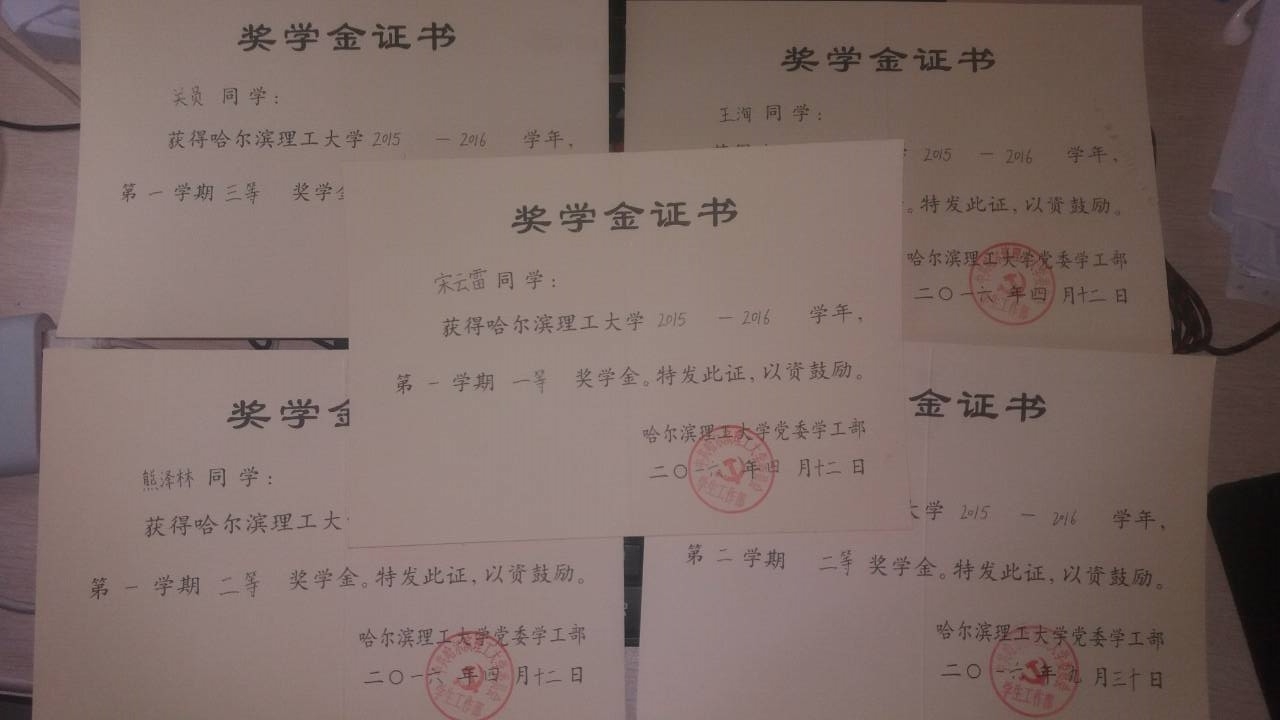 奖学金证书
关员 同学：
获得哈尔滨理工大学 2015 — 2016 学年，
第 一 学期 三等 奖学金
奖学金证书
王洵 同学：
学 2015 — 2016 学年，
。特发此证，以资鼓励。
哈尔滨理工大学党委学工部
二〇一六 年 四 月十二 日
学生工作部
奖学金证书
宋云雷 同学：
获得哈尔滨理工大学 2015 — 2016 学年，
第 一 学期 一等 奖学金。特发此证，以资鼓励。
哈尔滨理工大学党委学工部
二〇一六 年 四 月十二 日
学生工作部
奖学金
熊泽林 同学：
获得哈尔滨理工大
第 一 学期 二等 奖学金。特发此证，以资鼓励。
哈尔滨理工大学党委学工部
二〇一六 年 四 月十二 日
学生工作部
金证书
大学 2015 — 2016 学年，
第 二 学期 二等 奖学金。特发此证，以资鼓励。
哈尔滨理工大学党委学工部
二〇一六 年 九 月三十日
学生工作部